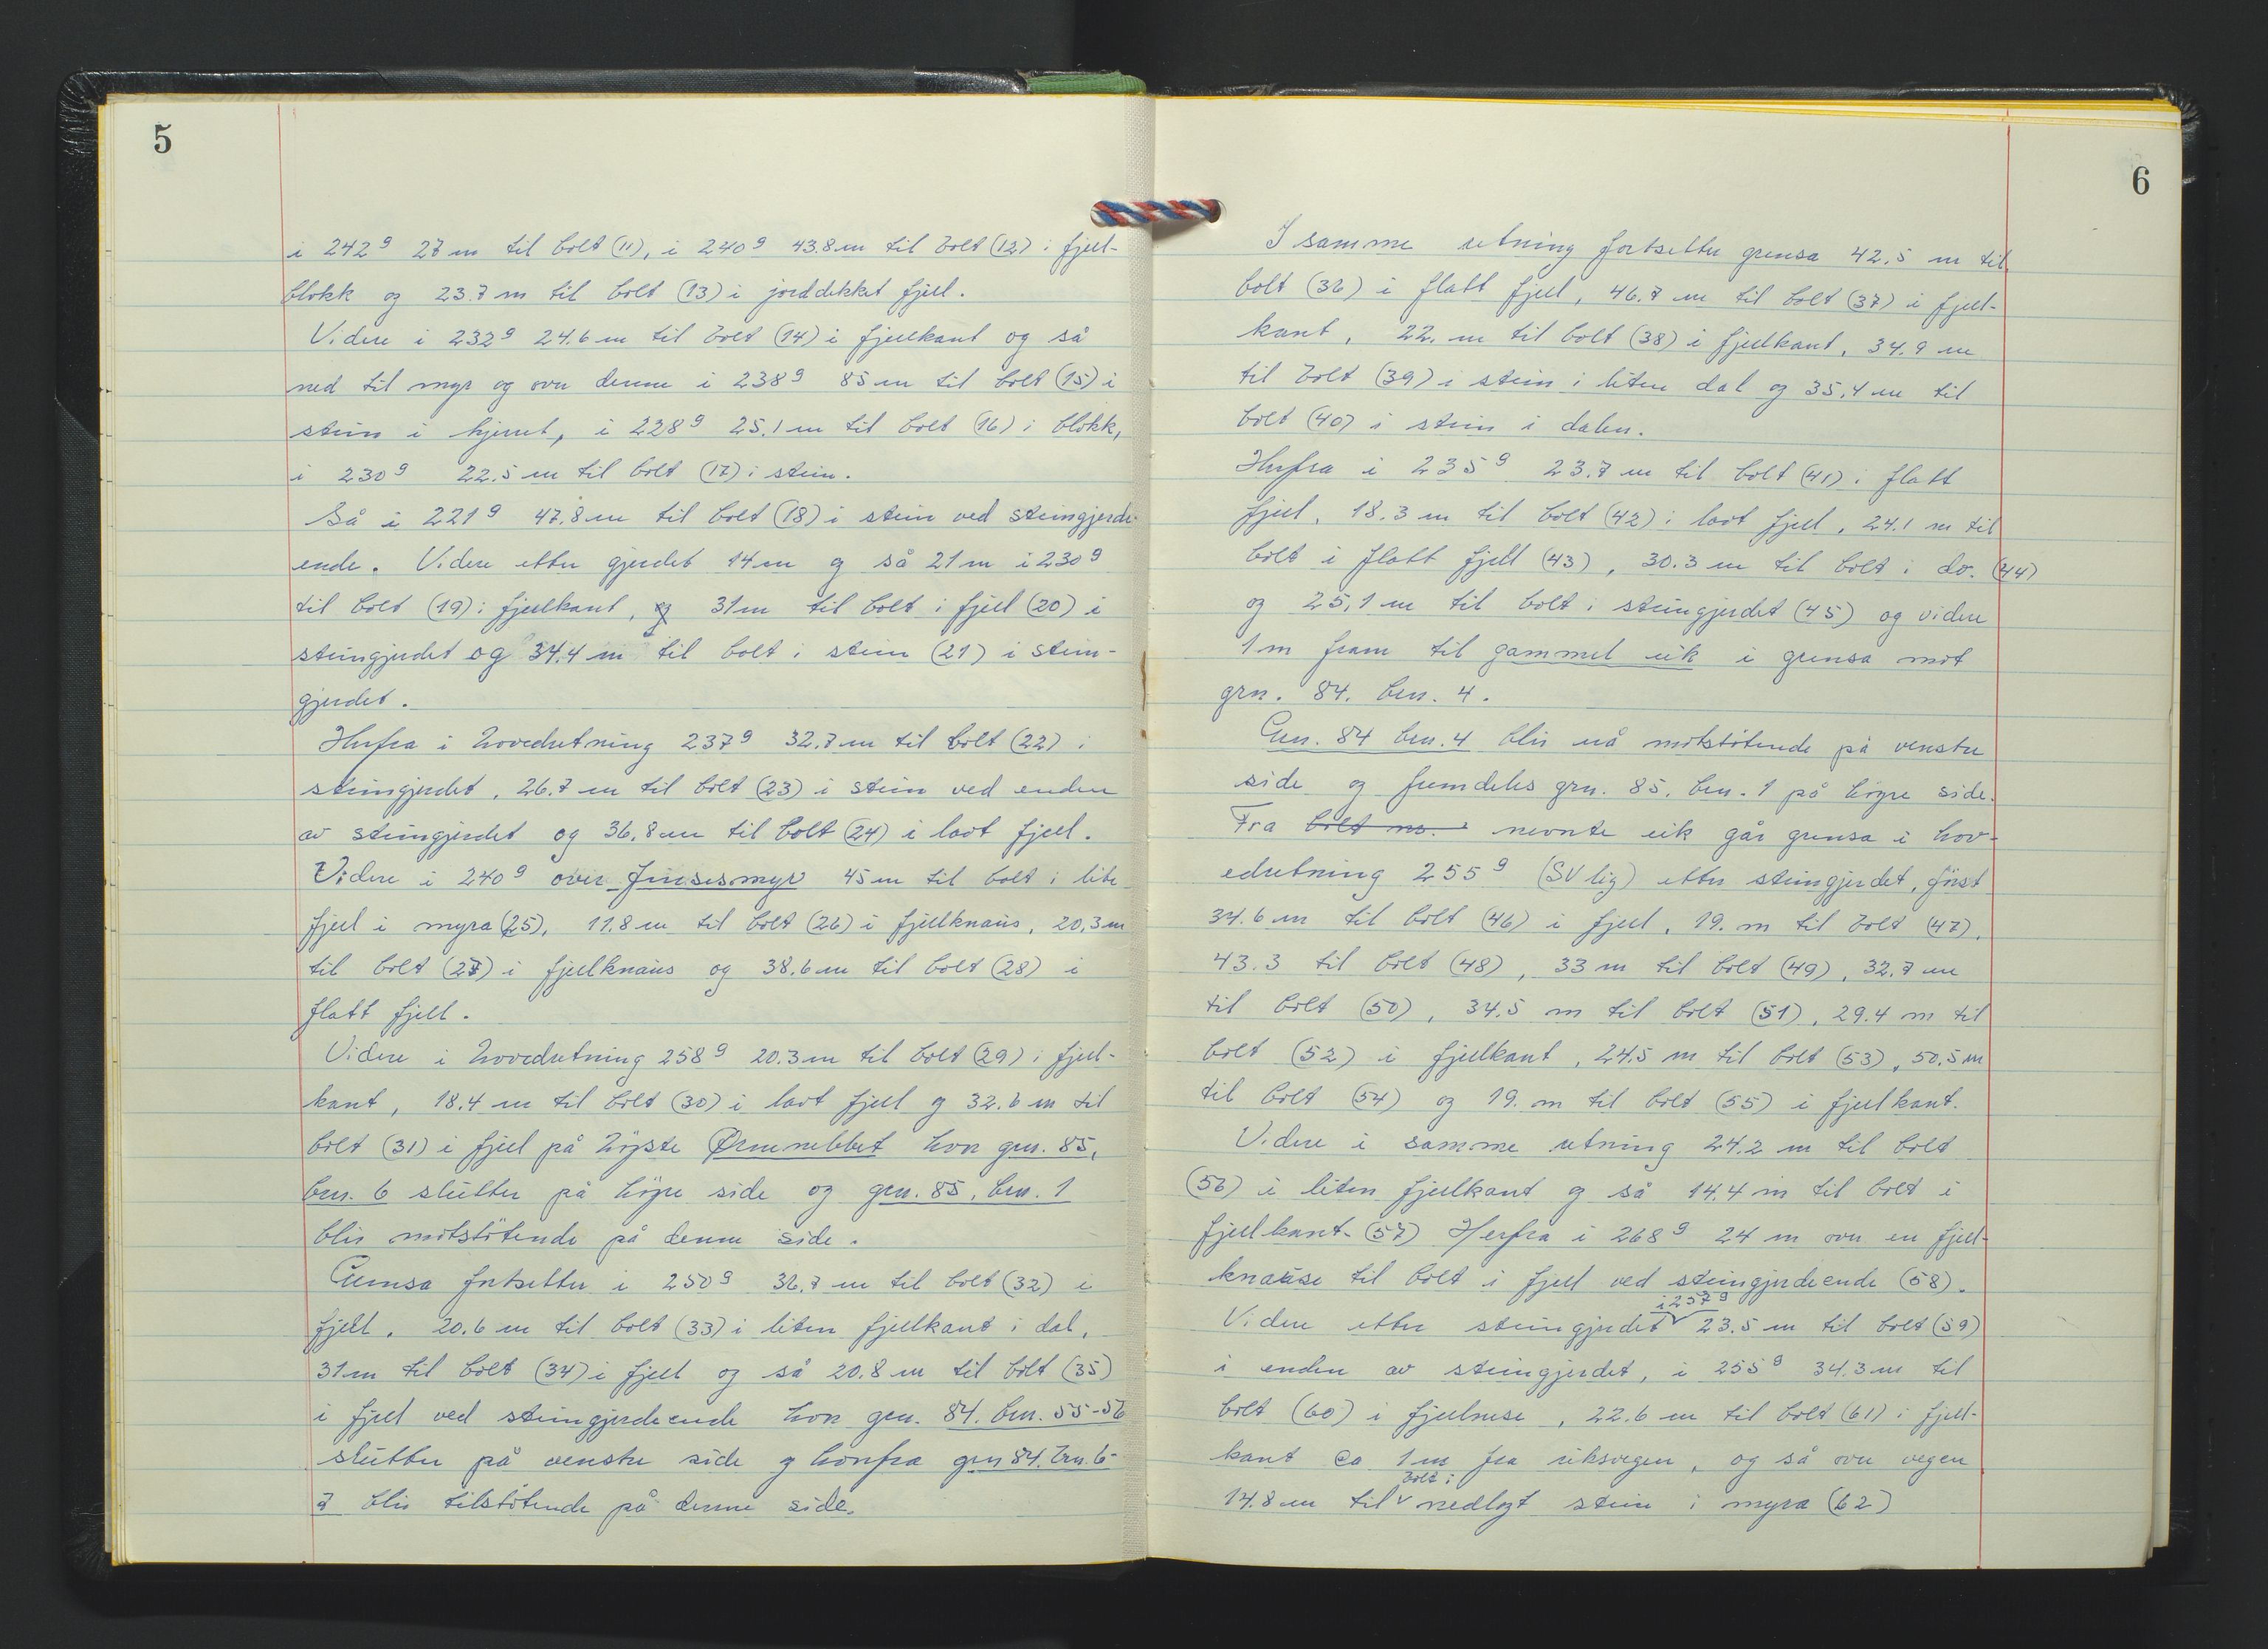 5
i 242g 27 m til bolt (11), i 240g 43.8 m til bolt (12) i fjell-
blokk og 23.7 m til bolt (13) i jorddekket fjell.
Videre i 232g 24.6 m til bolt (14) i fjellkant og så
ned til myr og over denne i 238g 85 m til bolt (15) i
stein i kjerret, i 228g 25.1 m til bolt (16) i blokk,
i 230g 22.5 m til bolt (17) i stein.
Så i 221g 47.8 m til bolt (18) i stein ved steingjerde-
ende. Videre etter gjerdet 14 m og så 21 m i 230g
til bolt (19) i fjellkant, og 31 m til bolt i fjell (20) i
steingjerdet og 34.4 m til bolt i stein (21) i stein-
gjerdet.
Herfra i hovedretning 237g 32.7 m til bolt (22) i
steingjerdet, 26.7 m til bolt (23) i stein ved enden
av steingjerdet og 36.8 m til bolt (24) i lavt fjell.
Videre i 240g over Finsesmyr 45 m til bolt i lite
fjell i myra (25), 11.8 m til bolt (26) i fjellknaus, 20,3 m
til bolt (27) i fjellknaus og 38.6 m til bolt (28) i
flatt fjell.
Videre i hovedretning 258g 20.3 m til bolt (29) i fjell-
kant, 18.4 m til bolt (30) i lavt fjell og 32.6 m til
bolt (31) i fjell på høyste Ørnenebbet hvor grn. 85,
brn. 6 slutter på høyre side og grn. 85, brn. 1
blir motstøtende på denne side.
Grensa fortsetter i 250g 36.7 m til bolt (32) i
fjell, 20.6 m til bolt (33) i liten fjellkant i dal,
31 m til bolt (34) i fjell og så 20.8 m til bolt (35)
i fjell ved steingjerdeende hvor grn. 84. brn. 55-56
slutter på venstre side og hvorfra grn 84. brn. 6-
7 blir tilstøtende på denne side.
6
I samme retning fortsetter grensa 42,5 m til
bolt (36) i flatt fjell, 46.7 m til bolt (37) i fjell-
kant, 22. m til bolt (38) i fjellkant, 34.9 m
til bolt (39) i stein i liten dal og 35,4 m til
bolt (40) i stein i dalen.
Herfra i 235g 23.7 m til bolt (41) i flatt
fjell, 18.3 m til bolt (42) i lavt fjell, 24.1 m til
bolt i flatt fjell (43), 30.3 m til bolt i do. (44)
og 25,1 m til bolt i steingjerdet (45) og videre
1 m fram til gammel eik i grensa mot
grn. 84. brn. 4.
Grn. 84 brn. 4 blir nå motstøtende på venstre
side og fremdeles grn. 85. brn. 1 på høyre side.
Fra bolt nr. nevnte eik går grensa i hov-
edretning 255g (SV lig) etter steingjerdet, først
34.6 m til bolt (46) i fjell, 19. m til bolt (47),
43.3 til bolt (48), 33 m til bolt (49), 32,7 m
til bolt (50), 34.5 m til bolt (51), 29.4 m til
bolt (52) i fjellkant, 24.5 m til bolt (53), 50,5 m
til bolt (54) og 19. m til bolt (55) i fjellkant.
Videre i samme retning 24.2 m til bolt
(56) i liten fjellkant og så 14.4 m til bolt i
fjellkant (57) Herfra i 268g 24 m over en fjell-
knause til bolt i fjell ved steingjerdeende (58).
Videre etter steingjerdet i 257g 23.5 m til bolt (59)
i enden av steingjerdet, i 255g 34.3 m til
bolt (60) i fjellnese, 22.6 m til bolt (61) i fjell-
kant ca 1 m fra riksvegen, og så over vegen
14.8 m til bolt i nedlagt stein i myra (62)